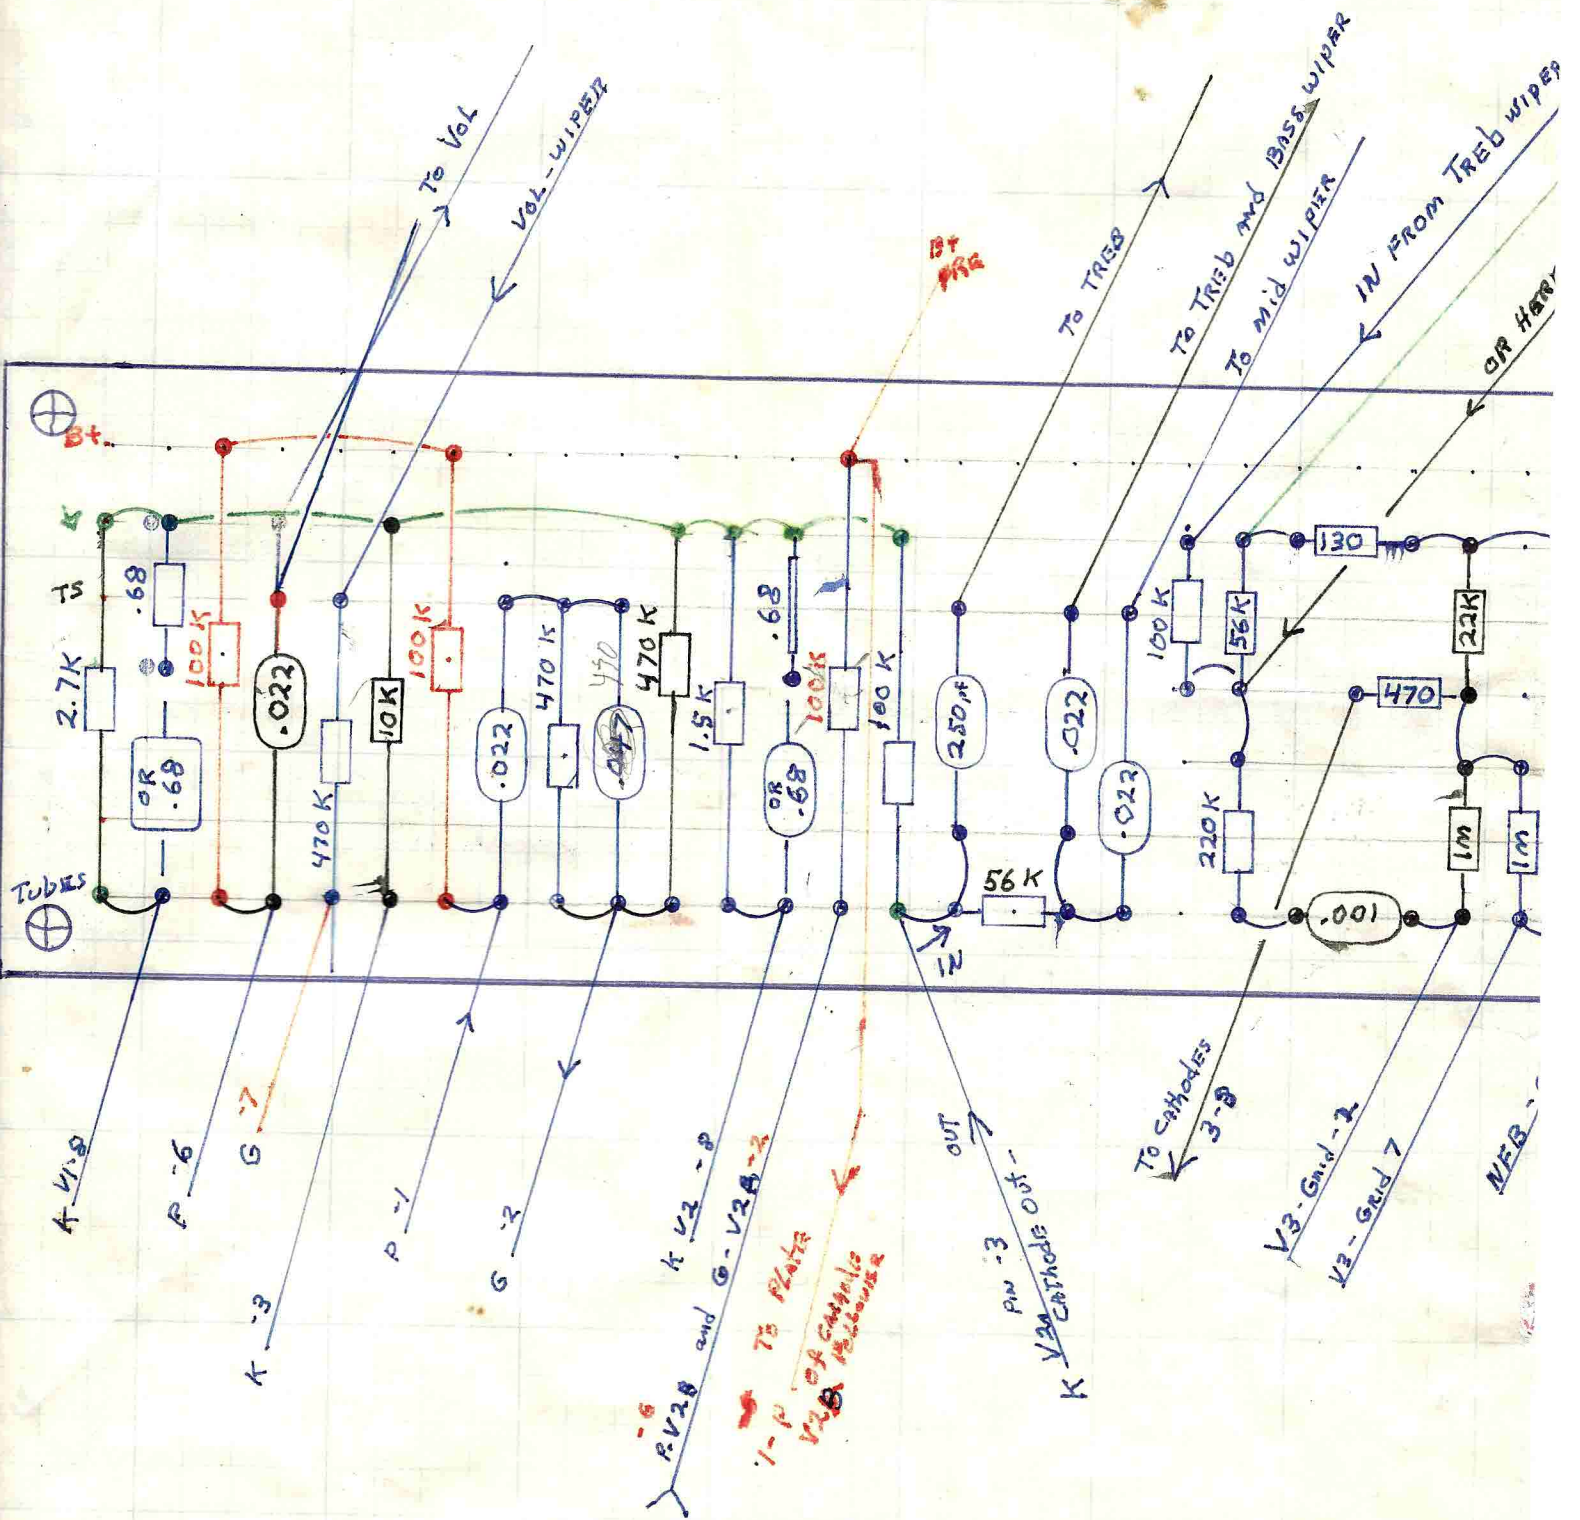 To VOL
VOL - WIPER
B+
PRE
To TREB
To TREB and BASS WIPER
To Mid WIPER
IN FROM TREB WIPER
OR HERE
B+
K
TS
TUBES
2.7K
.68
OR
.68
100K
.022
470K
10K
100K
.022
470K
470
470K
1.5K
.68
OR
.68
100K
100K
250pf
56K
.022
.022
100K
56K
130
220K
470
22K
.001
1M
1M
IN
K V1-8
P -6
G -7
K -3
P -1
G -2
K V2 -8
-6
P-V2B and G-V2A-2
1-P TO PLATE
OF CATHODE
FOLLOWER
OUT
PIN -3
K V2A CATHODE OUT -
TO CATHODES
3-8
V3-Grid-2
V3-GRID 7
NFB -